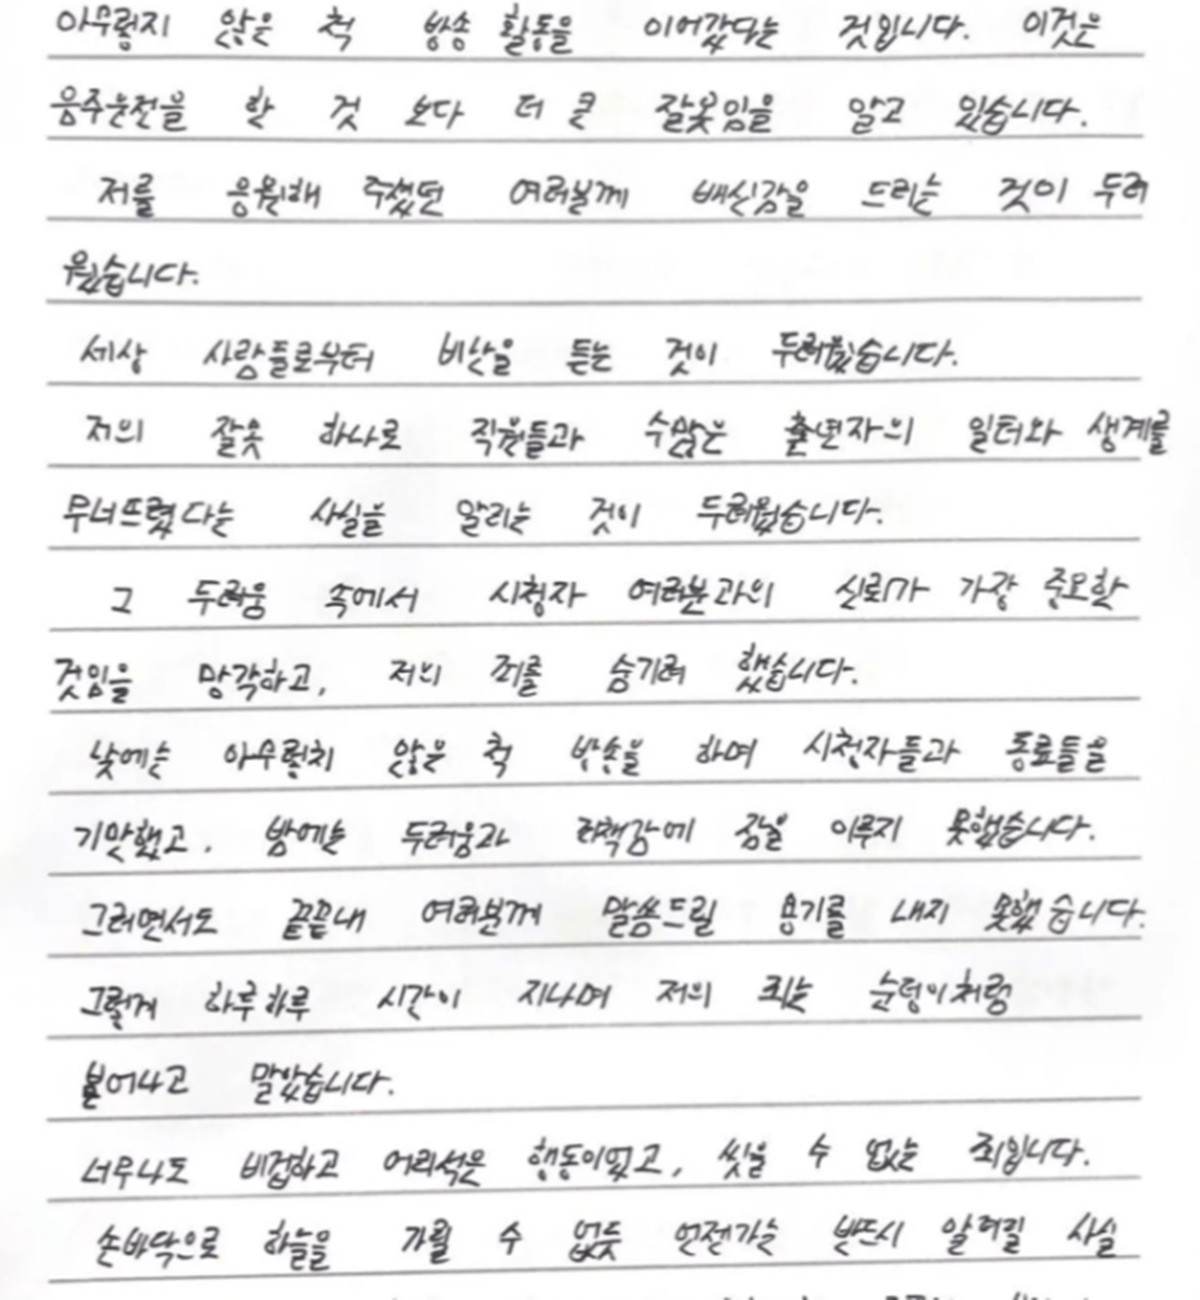 아무렇지 않은 척 방송 활동을 이어갔다는 것입니다. 이것은
음주운전을 한 것 보다 더 큰 잘못임을 알고 있습니다.
저를 응원해 주셨던 여러분께 배신감을 드리는 것이 두려
웠습니다.
세상 사람들로부터 비난을 듣는 것이 두려웠습니다.
저의 잘못 하나로 직원들과 수많은 출연자의 일터와 생계를
무너뜨렸다는 사실을 알리는 것이 두려웠습니다.
그 두려움 속에서 시청자 여러분과의 신뢰가 가장 중요한
것임을 망각하고, 저의 죄를 숨기려 했습니다.
낮에는 아무렇치 않은 척 방송을 하며 시청자들과 동료들을
기만했고, 밤에는 두려움과 죄책감에 잠을 이루지 못했습니다.
그러면서도 끝끝내 여러분께 말씀드릴 용기를 내지 못했습니다.
그렇게 하루하루 시간이 지나며 저의 죄는 눈덩이처럼
불어나고 말았습니다.
너무나도 비겁하고 어리석은 행동이였고, 씻을 수 없는 죄입니다.
손바닥으로 하늘을 가릴 수 없듯 언젠가는 반드시 알려질 사실